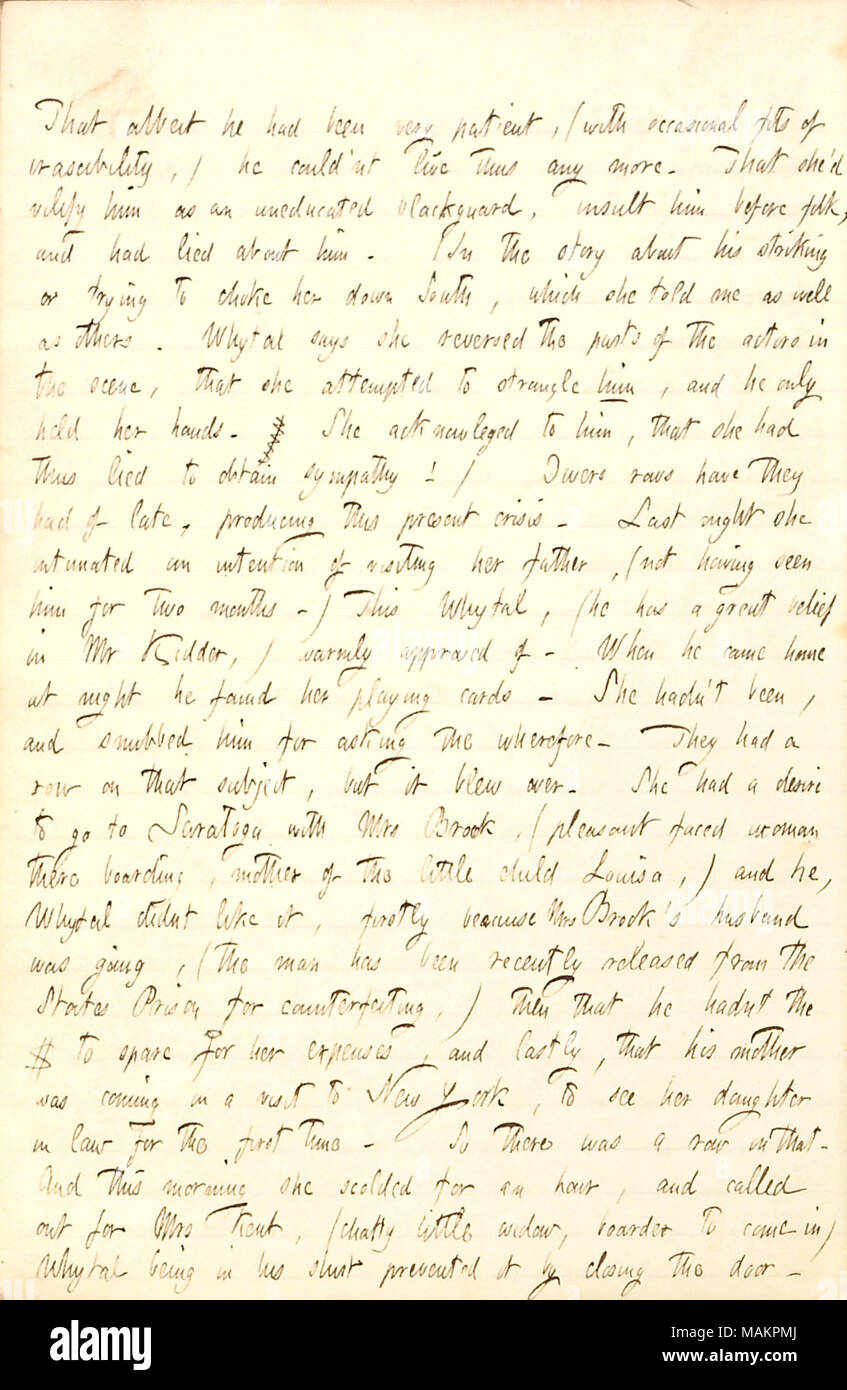 That albeit he had been very patient, (with occasional fits of
irascibility,) he could'nt live thus any more. That she'd
vilify him as an uneducated blackguard, insult him before folk,
and had lied about him. (In the story about his striking
or trying to choke her down South, which she told me as well
as others. Whytal says she reversed the parts of the actors in
the scene, that she attempted to strangle him, and he only
held her hands. She acknowleged to him, that she had
thus lied to obtain sympathy! ) Divers rows have they
had of late, producing this present crisis. Last night she
intimated an intention of visiting her father, (not having seen
him for two months.) This Whytal, (he has a great belief
in Mr Kidder,) warmly approved of. When he came home
at night he found her playing cards. She hadn't been,
and snubbed him for asking the wherefore. They had a
row on that subject, but it blew over. She had a desire
to go to Saratoga with Mrs Brook, (pleasant faced woman
there boarding, mother of the little child Louisa,) and he,
Whytal didnt like it, firstly because Mrs Brook's husband
was going, (the man has been recently released from the
States Prison for counterfeiting,) then that he hadn't the
$ to spare for her expenses, and lastly, that his mother
was coming on a visit to New York, to see her daughter
in law for the first time. So there was a row on that.
And this morning she scolded for an hour, and called
out for Mrs Kent, (chatty little widow, boarder to come in)
Whytal being in his shirt prevented it by closing the door.
alamy
Image ID: MAKPMJ
www.alamy.com